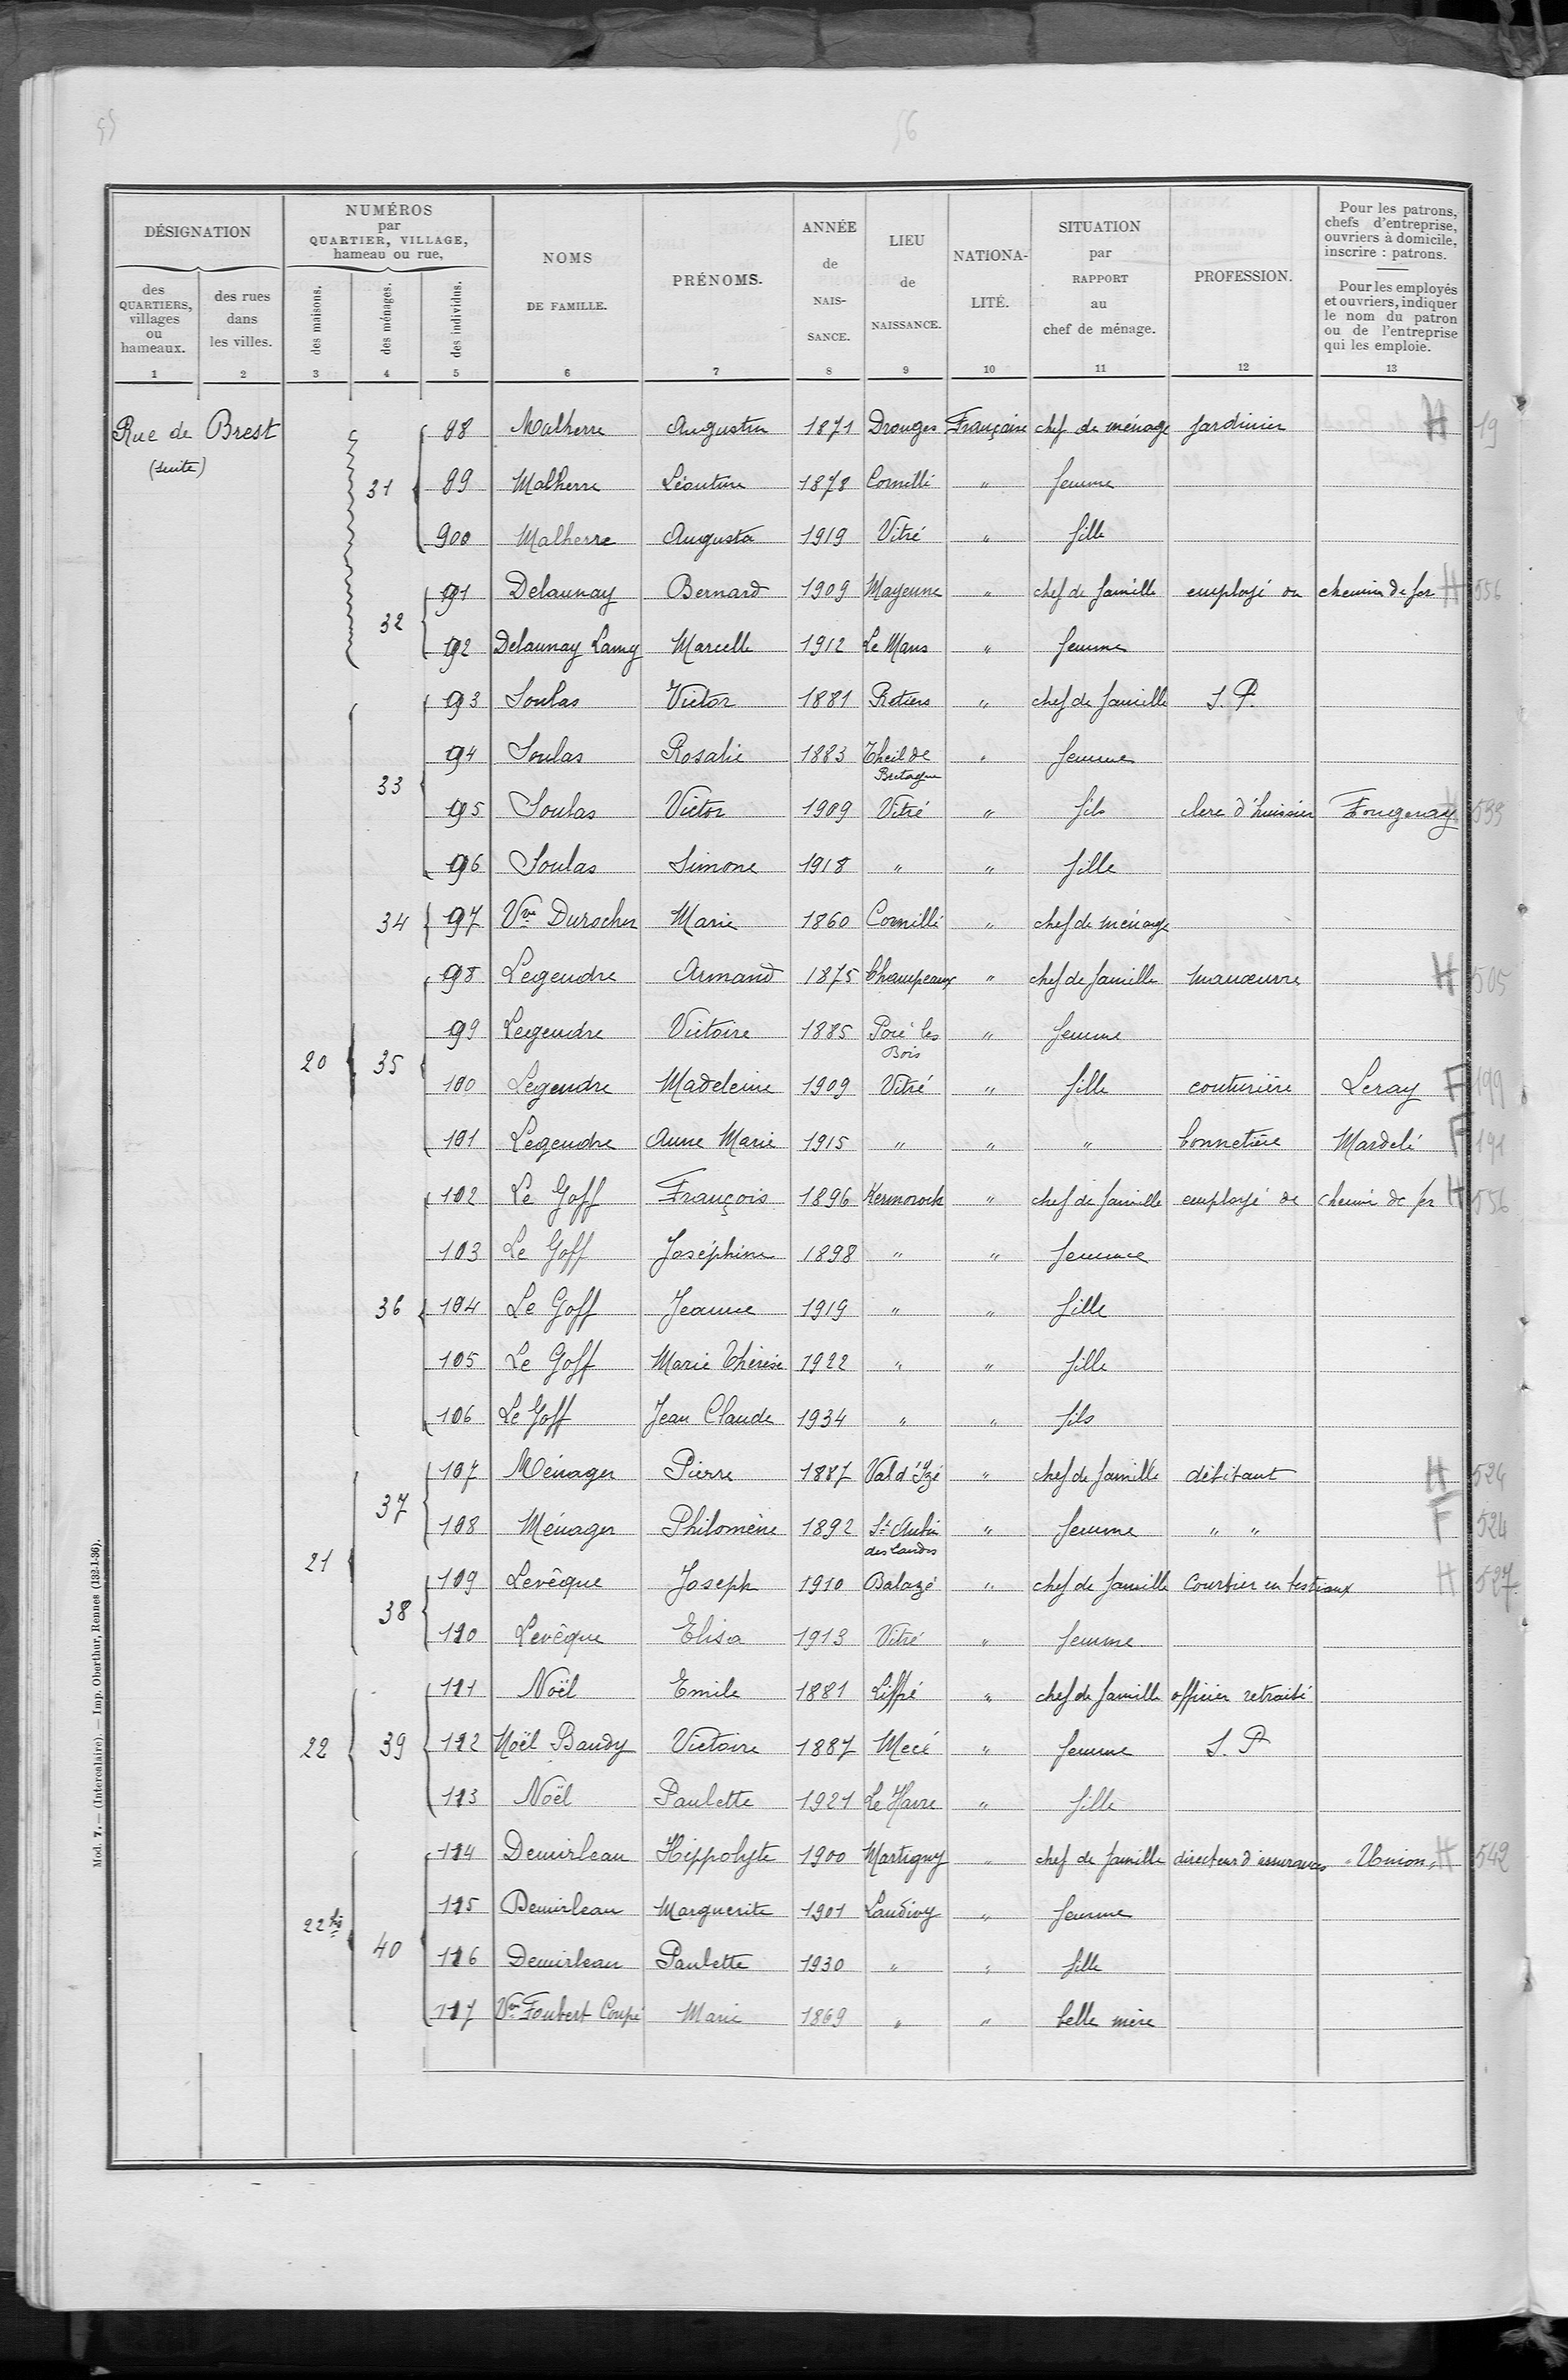 55
56
DÉSIGNATION
NUMÉROS
par
QUARTIER, VILLAGE,
hameau ou rue,
des
QUARTIERS,
villages
ou
hameaux.
des rues
dans
les villes.
des maisons.
des ménages.
des individus.
NOMS
DE FAMILLE.
PRÉNOMS.
ANNÉE
de
NAIS-
SANCE.
LIEU
de
NAISSANCE.
NATIONA-
LITÉ.
SITUATION
par
RAPPORT
au
chef de ménage.
PROFESSION.
Pour les patrons,
chefs d'entreprise,
ouvriers à domicile,
inscrire : patrons.
Pour les employés
et ouvriers, indiquer
le nom du patron
ou de l'entreprise
qui les emploie.
1 2 3 4 5 6 7 8 9 10 11 12 13
Rue de Brest
(suite)
31
88 Malherre Augustin 1871 Drouges Française chef de ménage Jardinier H 19
89 Malherre Léontine 1878 Cornillé " femme
900 Malherre Augusta 1919 Vitré " fille
32
91 Delaunay Bernard 1909 Mayenne " chef de famille employé de chemin de fer H 556
92 Delaunay Lamy Marcelle 1912 Le Mans " femme
33
93 Soulas Victor 1881 Retiers " chef de famille S. P.
94 Soulas Rosalie 1883 Theil de Bretagne " femme
95 Soulas Victor 1909 Vitré " fils clerc d'huissier Fougeray 533
96 Soulas Simone 1918 " " fille
34 97 Vve Durocher Marie 1860 Cornillé " chef de ménage
20 35
98 Legendre Armand 1875 Champeaux " chef de famille manœuvre H 505
99 Legendre Victoire 1885 Pocé les Bois " femme
100 Legendre Madeleine 1909 Vitré " fille couturière Leray F 199
101 Legendre Anne Marie 1915 " " " bonnetière Mardelé F 191
36
102 Le Goff François 1896 Kermoroch " chef de famille employé de chemin de fer H 556
103 Le Goff Joséphine 1898 " " femme
104 Le Goff Jeanne 1919 " " fille
105 Le Goff Marie Thérèse 1922 " " fille
106 Le Goff Jean Claude 1934 " " fils
21 37
107 Ménager Pierre 1887 Val d'Izé " chef de famille débitant H 524
108 Ménager Philomène 1892 St Aubin des Landes " femme " " F 524
38
109 Levêque Joseph 1910 Balazé " chef de famille Courtier en bestiaux H 527
110 Levêque Elisa 1913 Vitré " femme
22 39
111 Noël Emile 1881 Liffré " chef de famille officier retraité
112 Noël Baudy Victoire 1887 Mecé " femme S. P
113 Noël Paulette 1921 Le Havre " fille
22 bis 40
114 Demirleau Hippolyte 1900 Martigny " chef de famille directeur d'assurances "Union" H 542
115 Demirleau Marguerite 1901 Landivy " femme
116 Demirleau Paulette 1930 " " fille
117 Vve Foubert Coupé Marie 1869 " " belle mère
Mod. 7. — (Intercalaire). — Imp. Oberthur, Rennes (132-1-36).